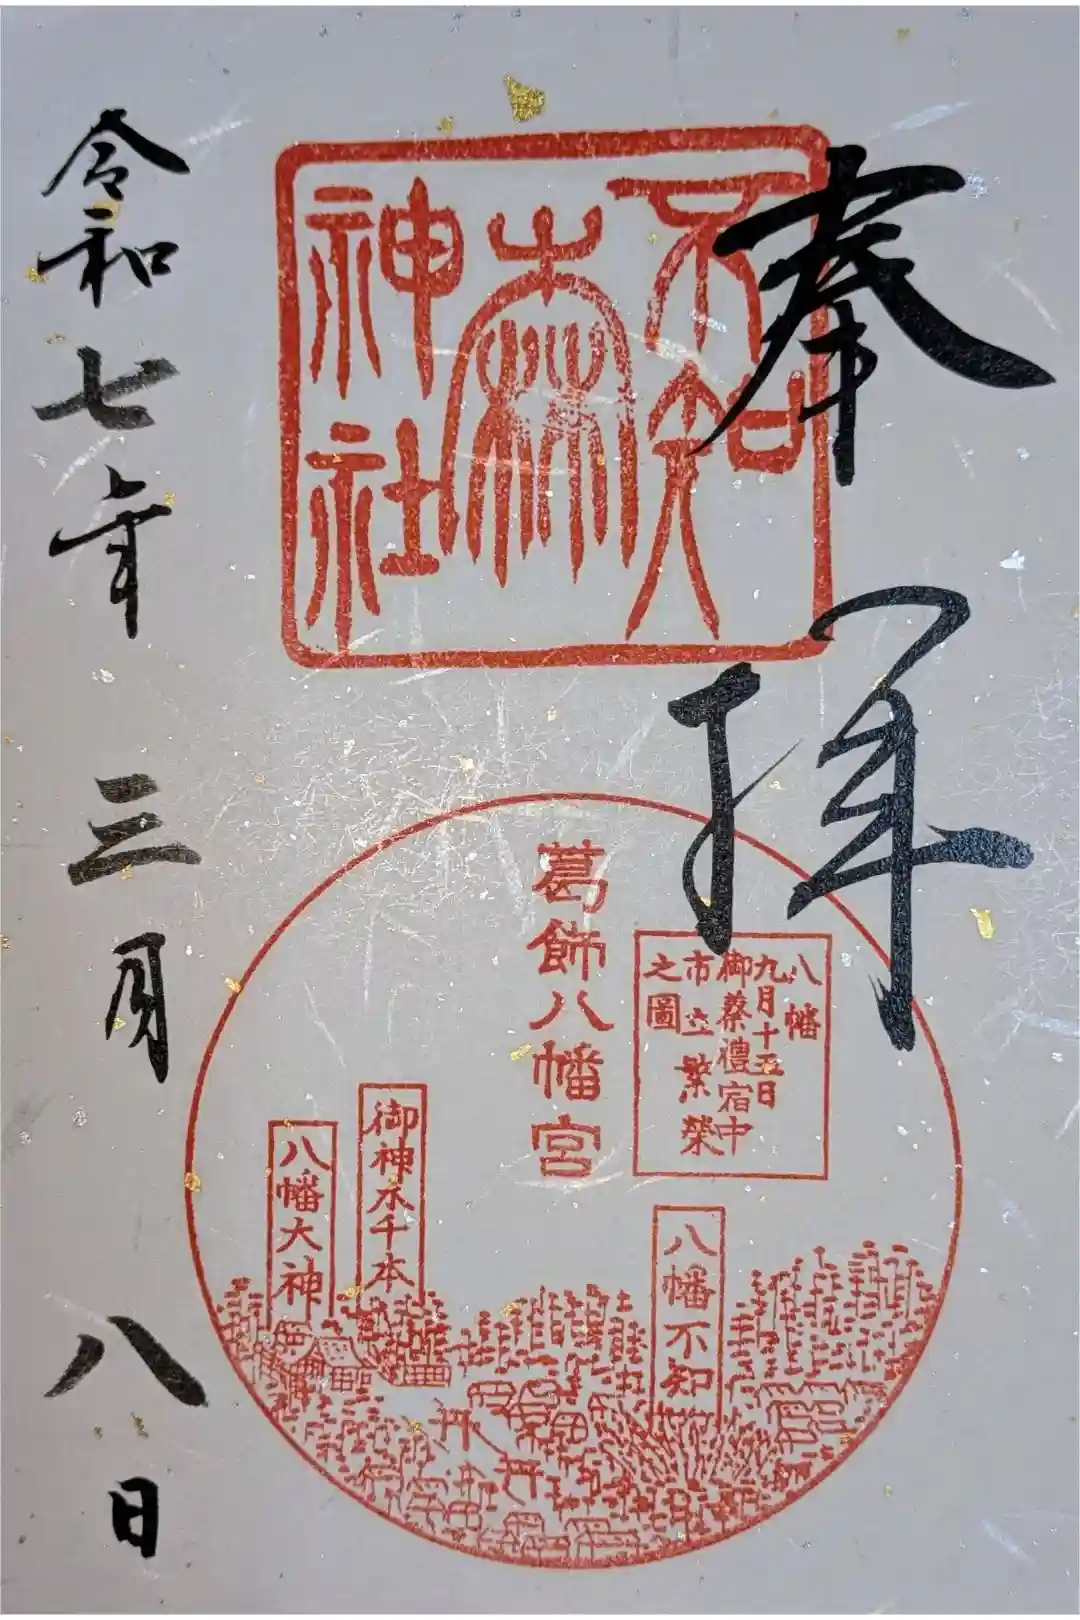 奉拝
不知
森
神社
葛飾八幡宮
八幡
九月十五日
御祭禮宿中
市立繁榮
之圖
八幡不知
御神木千本
八幡大神
令和七年三月八日